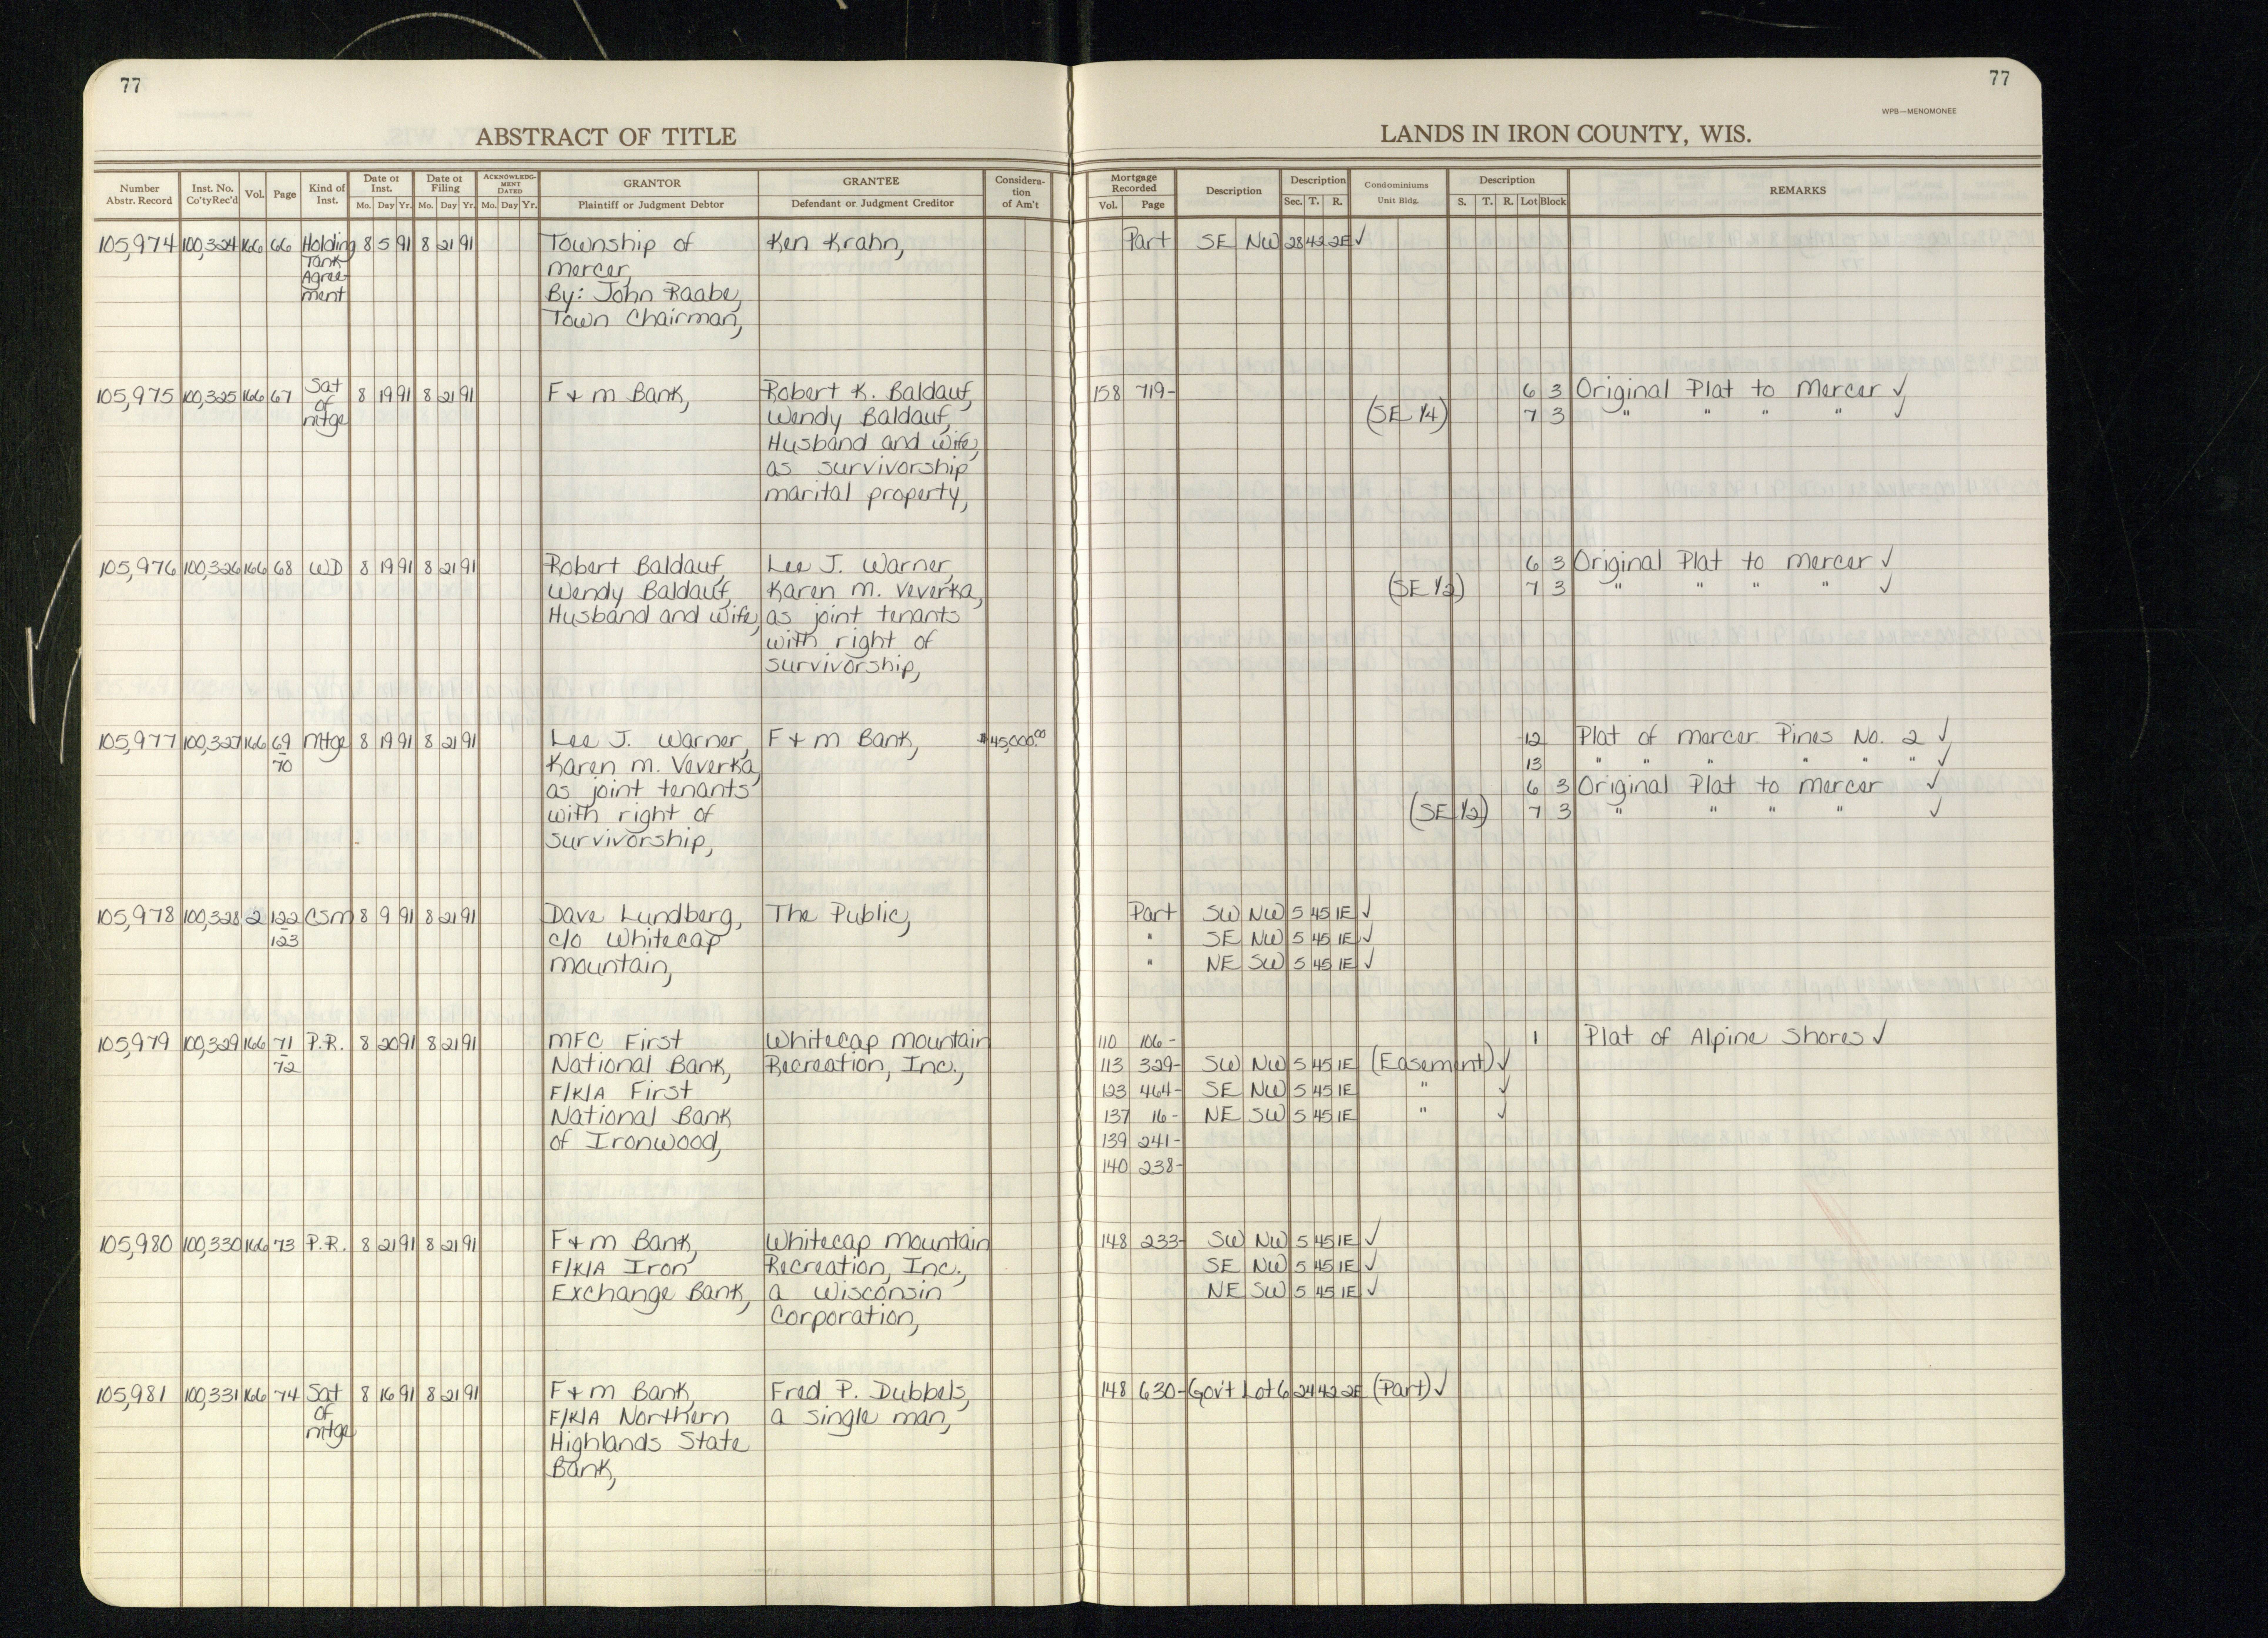 77
77
WPB—MENOMONEE
ABSTRACT OF TITLE
LANDS IN IRON COUNTY, WIS.
Number Abstr. Record | Inst. No. Co'tyRec'd | Vol. | Page | Kind of Inst. | Date of Inst. Mo. Day Yr. | Date of Filing Mo. Day Yr. | ACKNOWLEDG-MENT DATED Mo. Day Yr. | GRANTOR Plaintiff or Judgment Debtor | GRANTEE Defendant or Judgment Creditor | Considera-tion of Am't | Mortgage Recorded Vol. Page | Description | Description Sec. T. R. | Condominiums Unit Bldg. | Description S. T. R. Lot Block | REMARKS
105,974 100,324 166 66 Holding 8 5 91 8 21 91 Township of Ken Krahn, Part SE NW 28 42 2E ✓
Tank mercer,
Agree- By: John Raabe,
ment Town Chairman,
105,975 100,325 166 67 Sat 8 19 91 8 21 91 F & m Bank, Robert K. Baldauf, 158 719- 6 3 Original Plat to Mercer ✓
of Wendy Baldauf, (SE 1/4) 7 3 " " " " ✓
mtge Husband and wife,
as survivorship
marital property,
105,976 100,326 166 68 WD 8 19 91 8 21 91 Robert Baldauf, Lee J. Warner, 6 3 Original Plat to mercer ✓
Wendy Baldauf, Karen m. Veverka, (SE 1/2) 7 3 " " " " ✓
Husband and wife, as joint tenants
with right of
survivorship,
105,977 100,327 166 69 mtge 8 19 91 8 21 91 Lee J. Warner, F & m Bank, $45,000.00 12 Plat of mercer Pines No. 2 ✓
- 70 Karen m. Veverka, 13 " " " " " " ✓
as joint tenants 6 3 Original Plat to mercer ✓
with right of (SE 1/2) 7 3 " " " " ✓
survivorship,
105,978 100,328 2 122 CSM 8 9 91 8 21 91 Dave Lundberg, The Public, Part SW NW 5 45 1E ✓
- 123 c/o Whitecap " SE NW 5 45 1E ✓
mountain, " NE SW 5 45 1E ✓
105,979 100,329 166 71 P.R. 8 20 91 8 21 91 MFC First Whitecap mountain 110 106- 1 Plat of Alpine Shores ✓
- 72 National Bank, Recreation, Inc., 113 329- SW NW 5 45 1E (Easement) ✓
F/K/A First 123 464- SE NW 5 45 1E " ✓
National Bank 137 16- NE SW 5 45 1E " ✓
of Ironwood, 139 241-
140 238-
105,980 100,330 166 73 P.R. 8 21 91 8 21 91 F & m Bank, Whitecap mountain 148 233- SW NW 5 45 1E ✓
F/K/A Iron Recreation, Inc., SE NW 5 45 1E ✓
Exchange Bank, a Wisconsin NE SW 5 45 1E ✓
Corporation,
105,981 100,331 166 74 Sat 8 16 91 8 21 91 F & m Bank, Fred P. Dubbels, 148 630- Gov't Lot 6 24 42 2E (Part) ✓
of F/K/A Northern a single man,
mtge Highlands State
Bank,